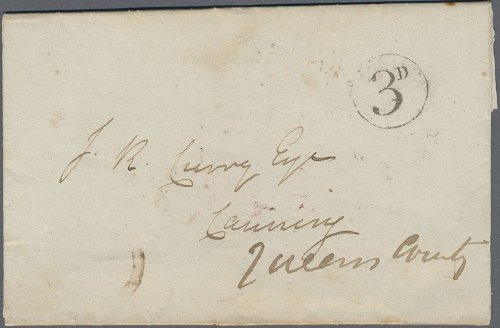 3D
J. R. Currey Esqr
Canning
Queens County